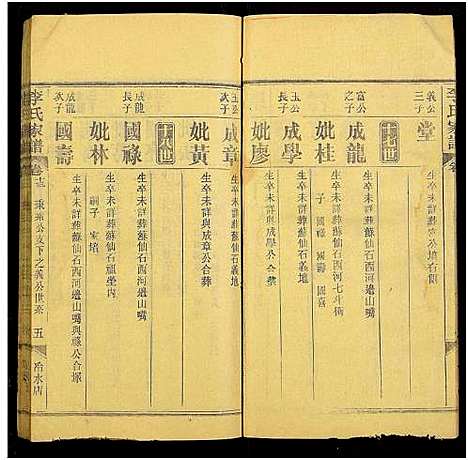 李氏家譜 卷
義公三子 堂 生卒未詳葬蘇仙石義地
十七世
富公之子 成龍 生卒未詳葬蘇仙石西河七斗衝
妣桂 子 國祿 國壽 國喜
玉公長子 成學 生卒未詳葬蘇仙石義地
妣廖 生卒未詳與成學公合葬
玉公次子 成章 生卒未詳葬蘇仙石義地
妣黃 生卒未詳與成章公合葬
十八世
成龍長子 國祿 生卒未詳葬蘇仙石西河邊山嘴
妣林 生卒未詳葬蘇仙石祖塋內
嗣子 家培
成龍次子 國壽 生卒未詳葬蘇仙石西河邊山嘴與祿公合塚
李氏家譜 卷十三 秉來公支下之義公世系 五 冷水店